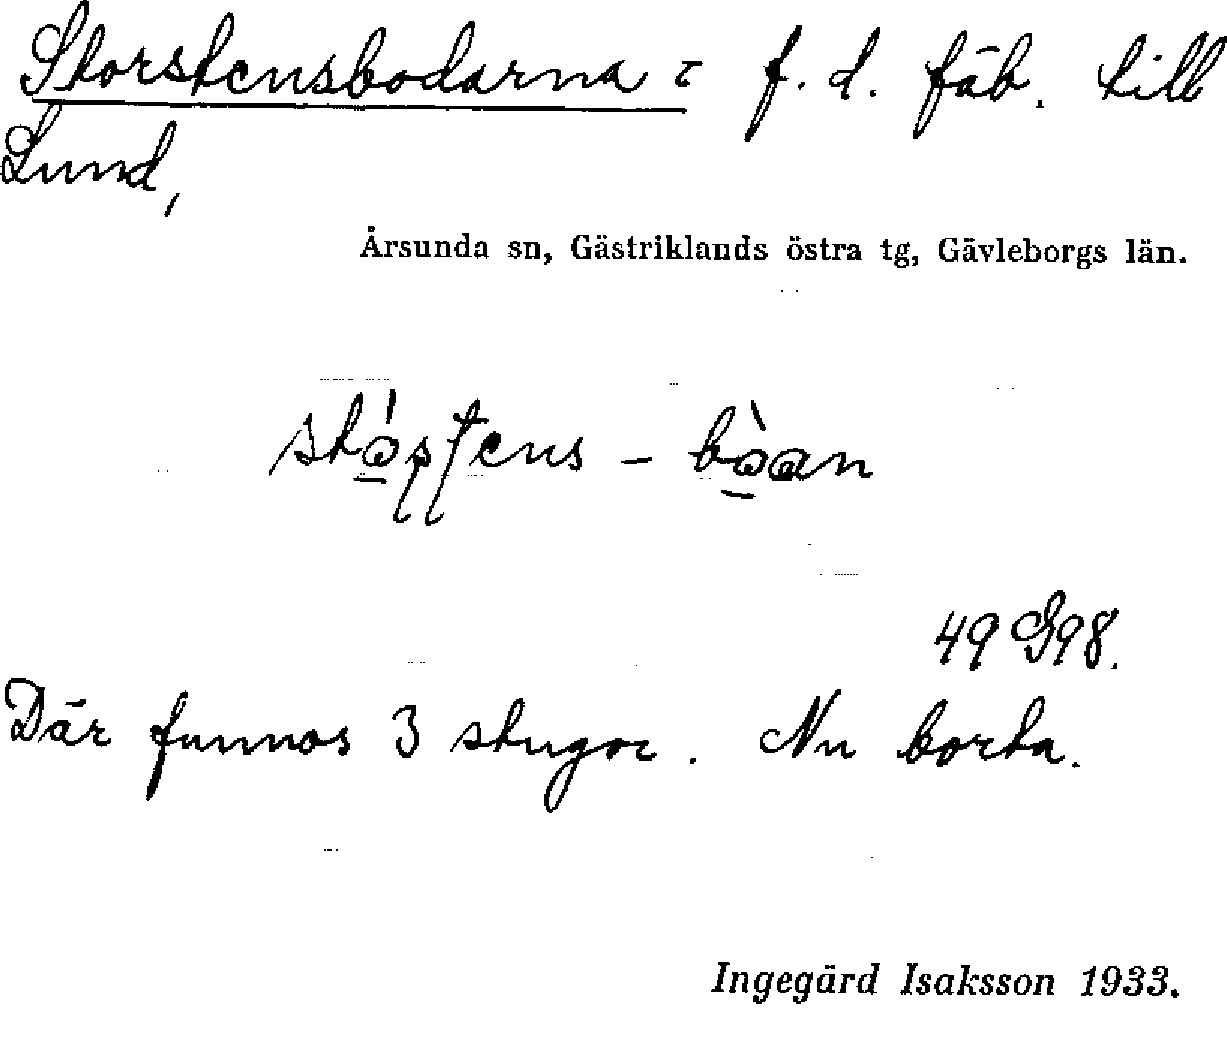 Storstensbodarna : f. d. fäb. till
Lund,
Årsunda sn, Gästriklands östra tg, Gävleborgs län.
49 G 98.
Där funnos 3 stugor. Nu borta.
Ingegärd Isaksson 1933.